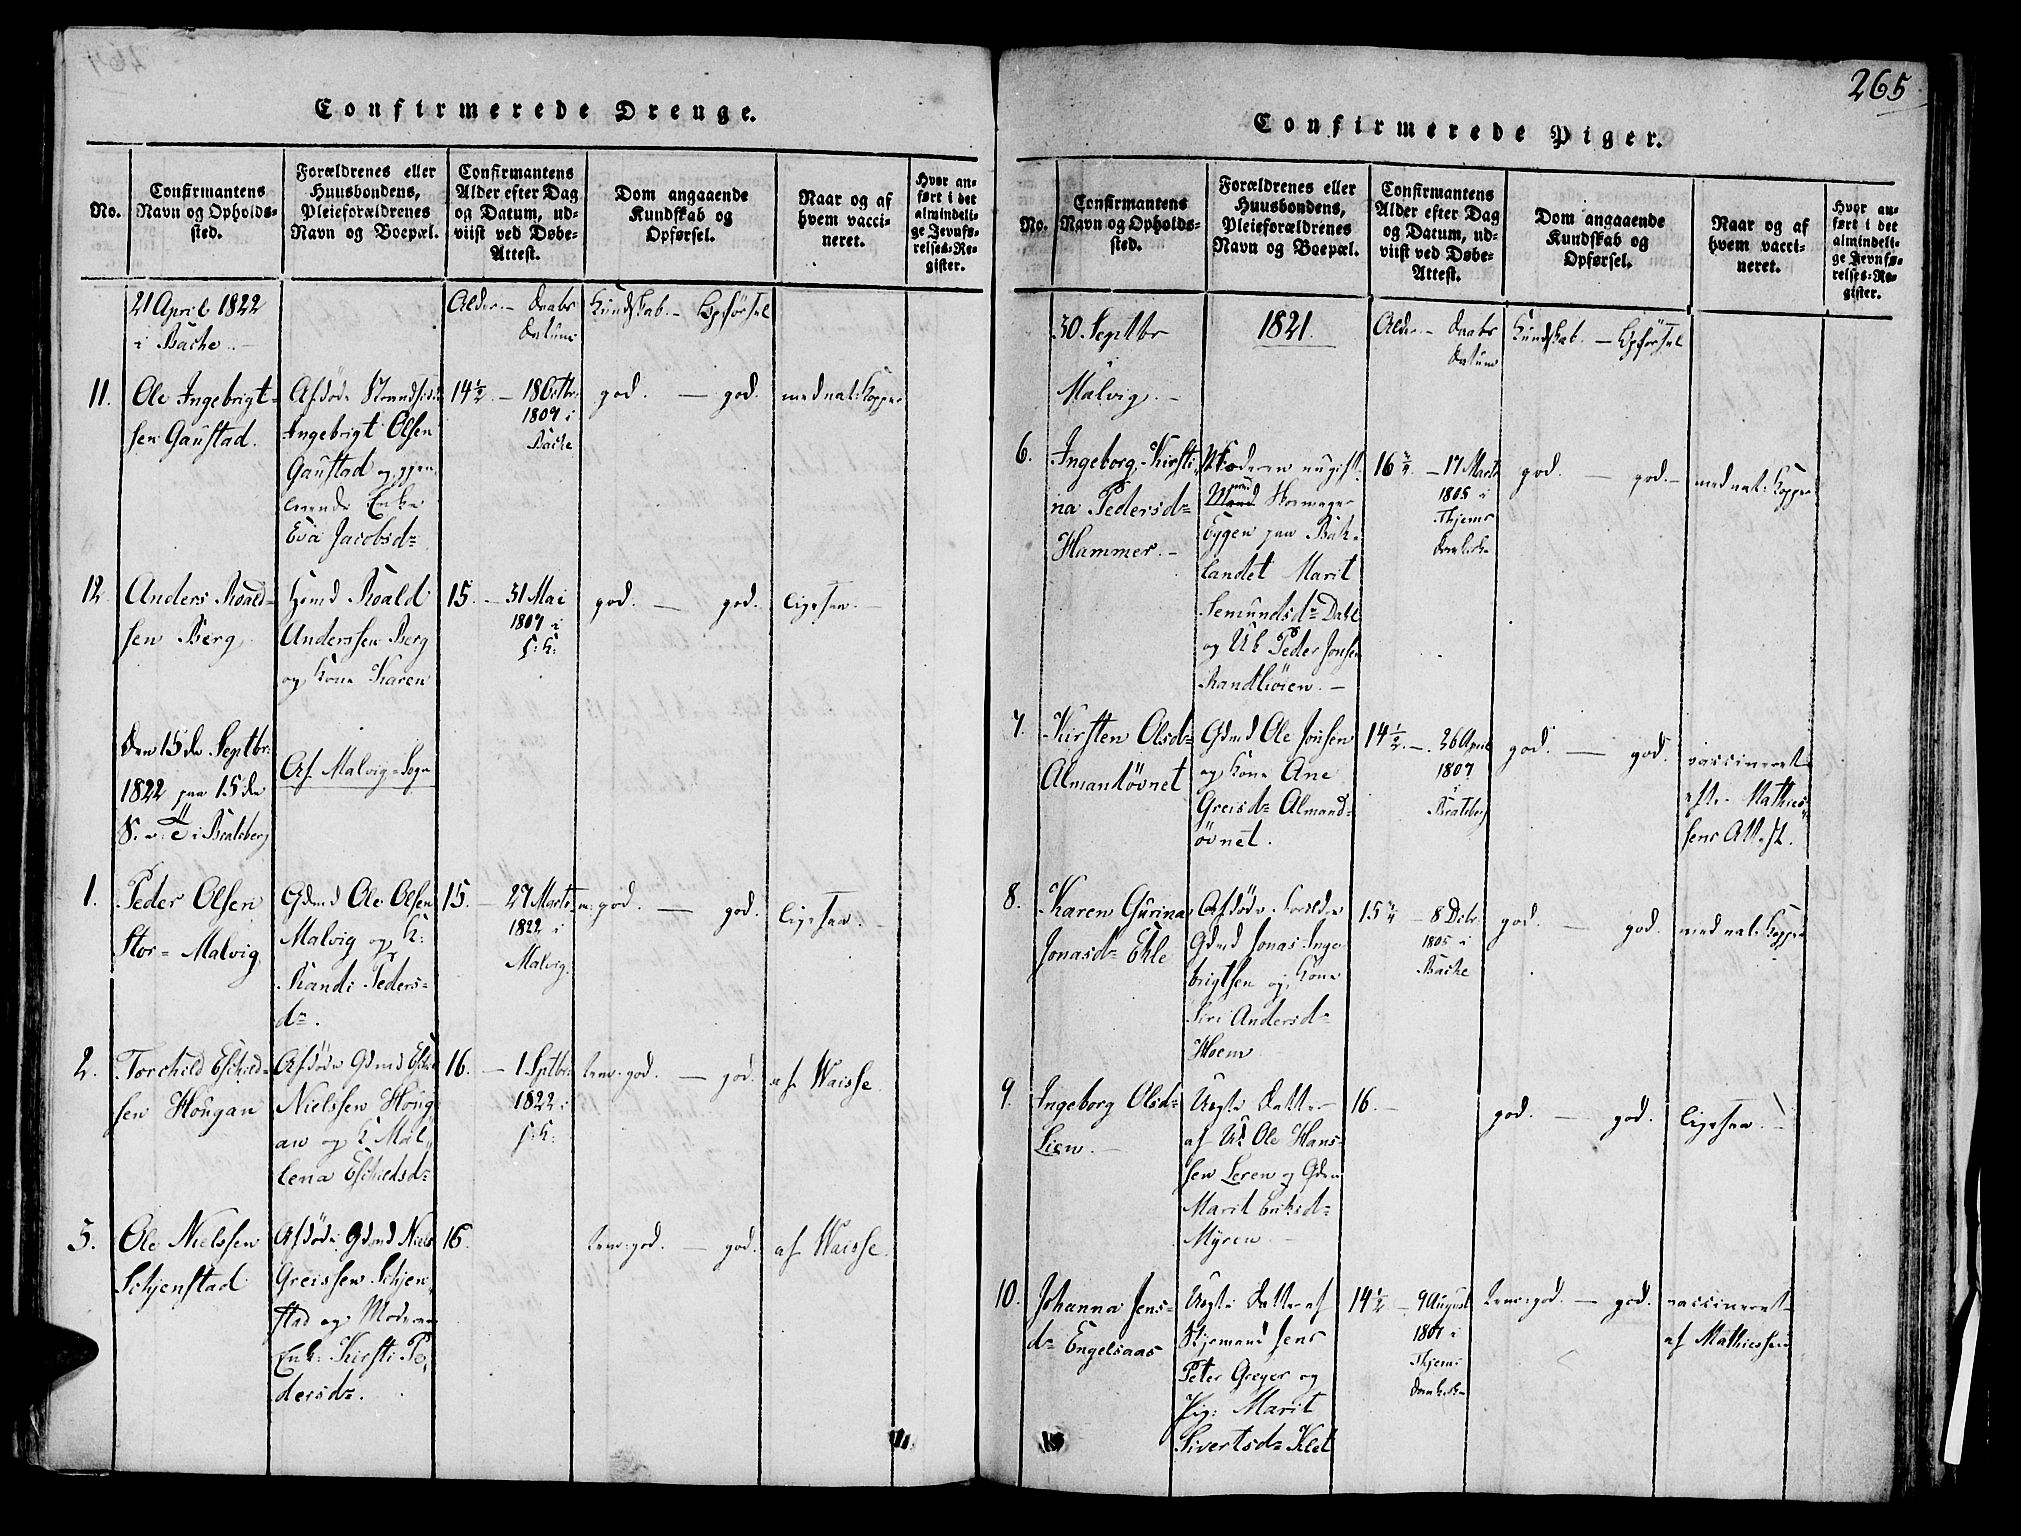 Confirmerede Drenge.
No.
Confirmantens
Navn og Opholds-
sted.
Forældrenes eller
Huusbondens,
Pleieforældrenes
Navn og Boepæl.
Confirmantens
Alder efter Dag
og Datum, ud-
viist ved Døbe-
Attest.
Dom angaaende
Kundskab og
Opførsel.
Naar og af
hvem vacci-
neret.
Hvor an-
ført i det
almindeli-
ge Jevnfø-
relses-Re-
gister.
21 April 1822
i Bache
Alder — Daabs
Datum
Kundskab — Opførsel
11.
Ole Ingebrigt-
sen Gaustad.
Afdøde
Ingebrigt Olsen
Gaustad og gjen
levende Enke
Eva Jacobsd=
14½ — 18 Octbr
1807 i
Bache
god. — god.
med nat: Kopper
12
Anders Roald-
sen Berg
Roald
Anderssen Berg
og Kone Karen
15. — 31 Mai
1807 i
S: K:
god. — god.
ligesaa
Den 15de Septbr:
1822 paa 15de
S. e: T i Bratsberg
Af Malvig-Sogn
1.
Peder Olsen
Stor= Malvig
Gdmd Ole Olsen
Malvig og K:
Randi Peders-
d=.
15. — 27 Marts
1822 i
Malvig
god. — god.
ligesaa
2.
Torchild Eschild=
sen Hougan
Afdøde Gdmd
Nielssen Houg
an og K
lena
16. — 1 Sptbr
1822 i
S: K:
temm: god. — god.
af Waisse
3.
Ole Nielssen
Schjenstad
Afdøde Gdmd Niels
Greissen Schjen
stad og Moderen
Enk: Kirsti Pe,
dersd=.
16.
temm: god. — god.
af Waisse
265
Confirmerede Piger.
No.
Confirmantens
Navn og Opholds-
sted.
Forældrenes eller
Huusbondens,
Pleieforældrenes
Navn og Boepæl.
Confirmantens
Alder efter Dag
og Datum, ud-
viist ved Døbe-
Attest.
Dom angaaende
Kundskab og
Opførsel.
Naar og af
hvem vacci-
neret.
Hvor an-
ført i det
almindeli-
ge Jevnfø-
relses-Re-
gister.
30 Septbr
i
Malvig. —
1821.
Alder — Daabs
Datum
Kundskab — Opførsel
6.
Ingeborg Kirsti
na Pedersd=
Hammer. —
Moderen nugift
med
Eggen paa Bak-
landet Marit
Semundsd= Dahl
og Uk Peder Jonsen
Randliøien. —
16 — 17 Marts
1805 i
Thjems
Domkirke
god. — god. —
med nat: Kopper
7.
Kirsten Olsd=
Almandøvnet
Gdmd Ole Jonsen
og Kone Ane
Greisd= Almand=
øvnet.
14½ — 26 April
1807
i
Bratsberg
god. — god.
vaccineret
efter Mathies-
sens Attest.
8.
Karen Gurina
Jonasd= Ekle
Afdøde
Gdmd Jonas Inge
brigtsen og Kone
Siri Andersd=
Hoem
15 — 8 Dcbr
1805 i
Bache
god. — god.
med nat: Kopper
9.
Ingeborg Olsd=
Lien. —
Uegte Datter
af Uk Ole Hans-
sen Leren og
Marit Eriksd=
Myren. —
16. —
god. — god.
ligesaa. —
10.
Johanna Jens-
d= Engelsaas
Uegte Datter af
Jens
Peter Greger og
Pig: Marit
Sivertsd= Klet
14½ — 9 August
1807 i
Thjems
Domkirke
temm: god. — god.
vaccineret
af Mathiessen